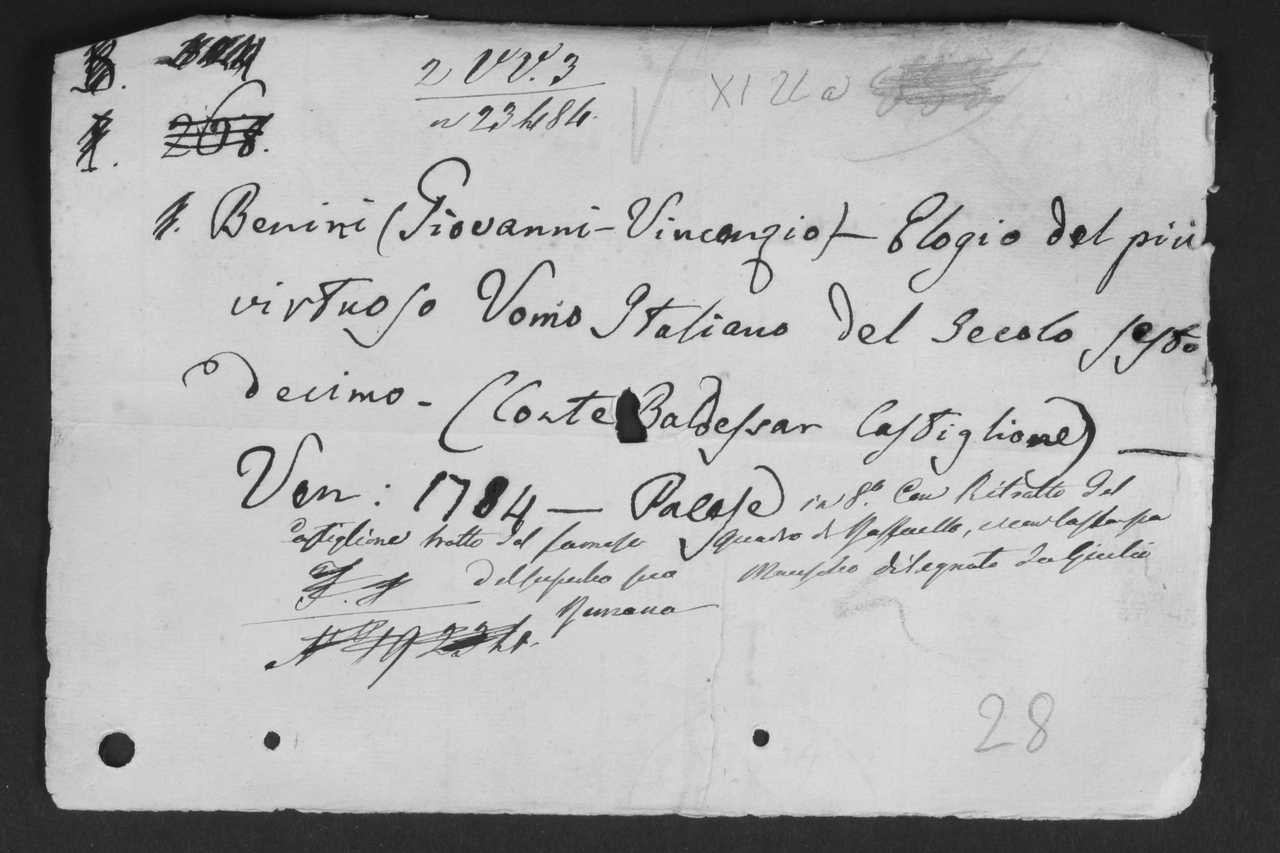 B.
2 VV. 3
XI
I. 268.
n 23484.
I. Benini (Giovanni-Vincenzio) — Elogio del più
virtuoso Uomo Italiano del Secolo sesto
decimo - (Conte Baldessar Castiglione) —
Ven: 1784 — Palese in 8.º Con Ritratto del
Castiglione tratto dal famoso Quadro di Raffaello, e con la stampa
del superbo suo Mausoleo disegnato da Giulio
Romano
28